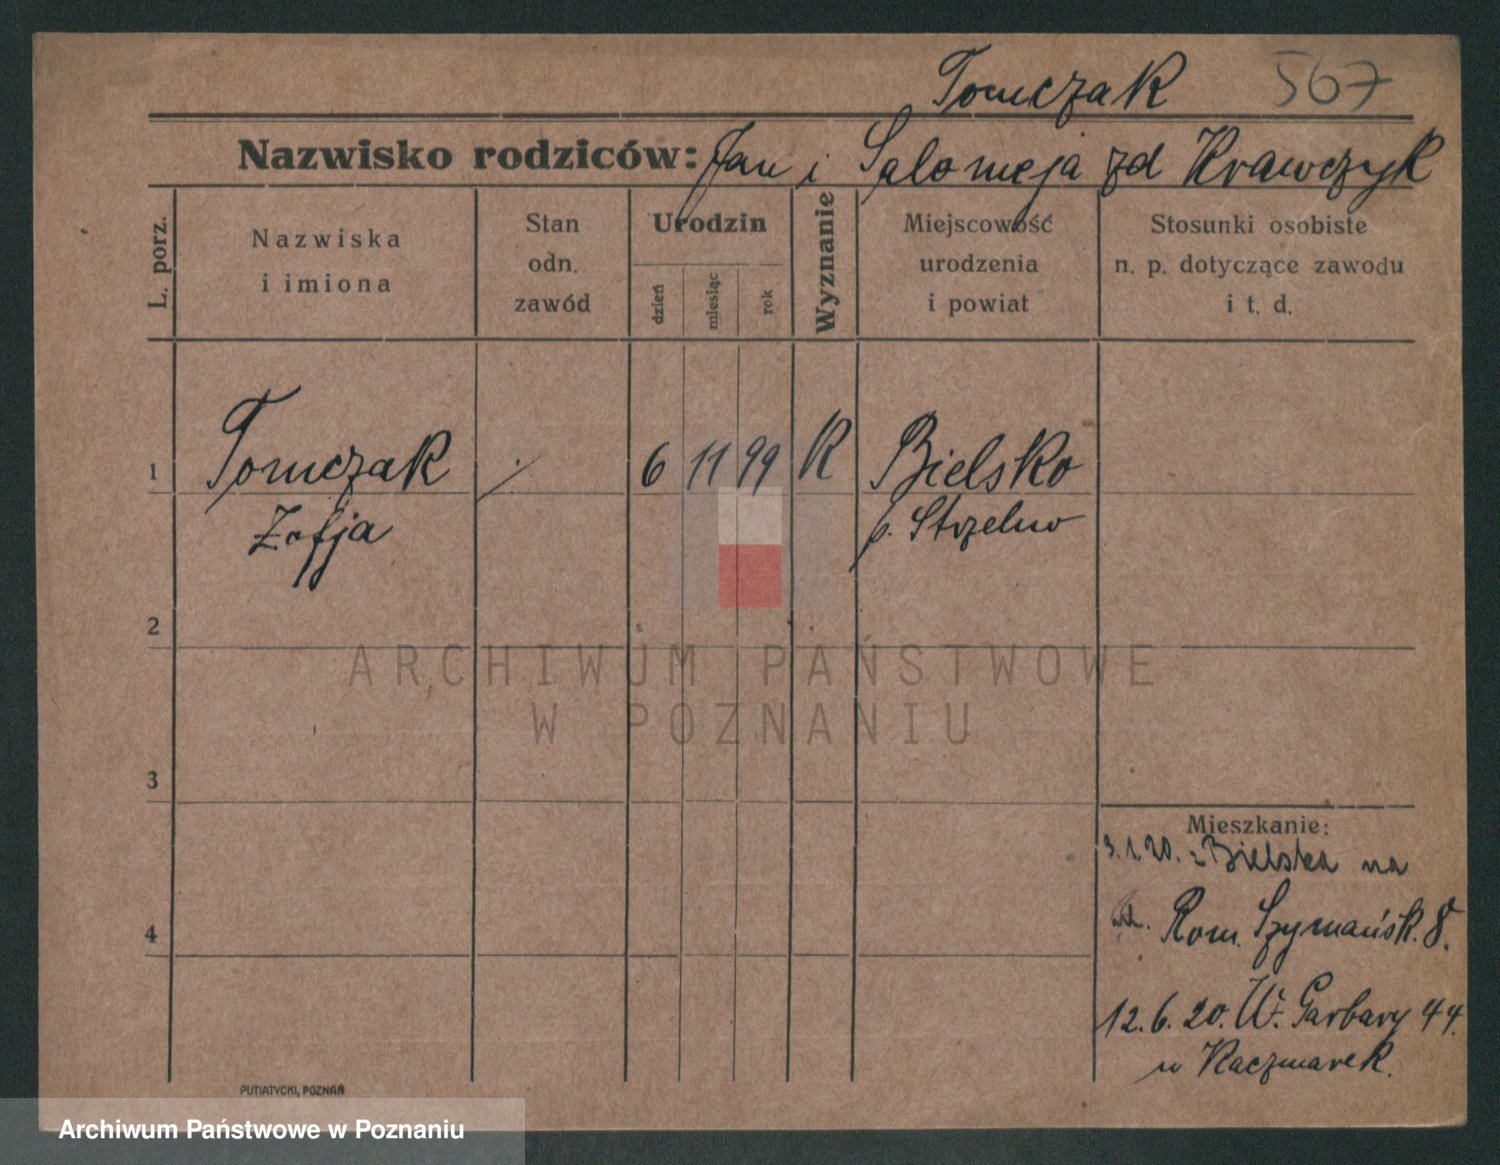 Tomczak 567
Nazwisko rodziców: Jan i Salomeja zd Krawczyk
L. porz.
Nazwiska
i imiona
Stan
odn.
zawód
Urodzin
dzień
miesiąc
rok
Wyznanie
Miejscowość
urodzenia
i powiat
Stosunki osobiste
n. p. dotyczące zawodu
i t. d.
1 Tomczak 6 11 99 K Bielsko
Zofja p. Strzelno
2
ARCHIWUM PAŃSTWOWE
W POZNANIU
3
Mieszkanie:
3.1.20. z Bielska na
Rom. Szymańsk. 8.
4
12.6.20. W. Garbary 44.
u Kaczmarek.
PUTIATYCKI, POZNAŃ
Archiwum Państwowe w Poznaniu